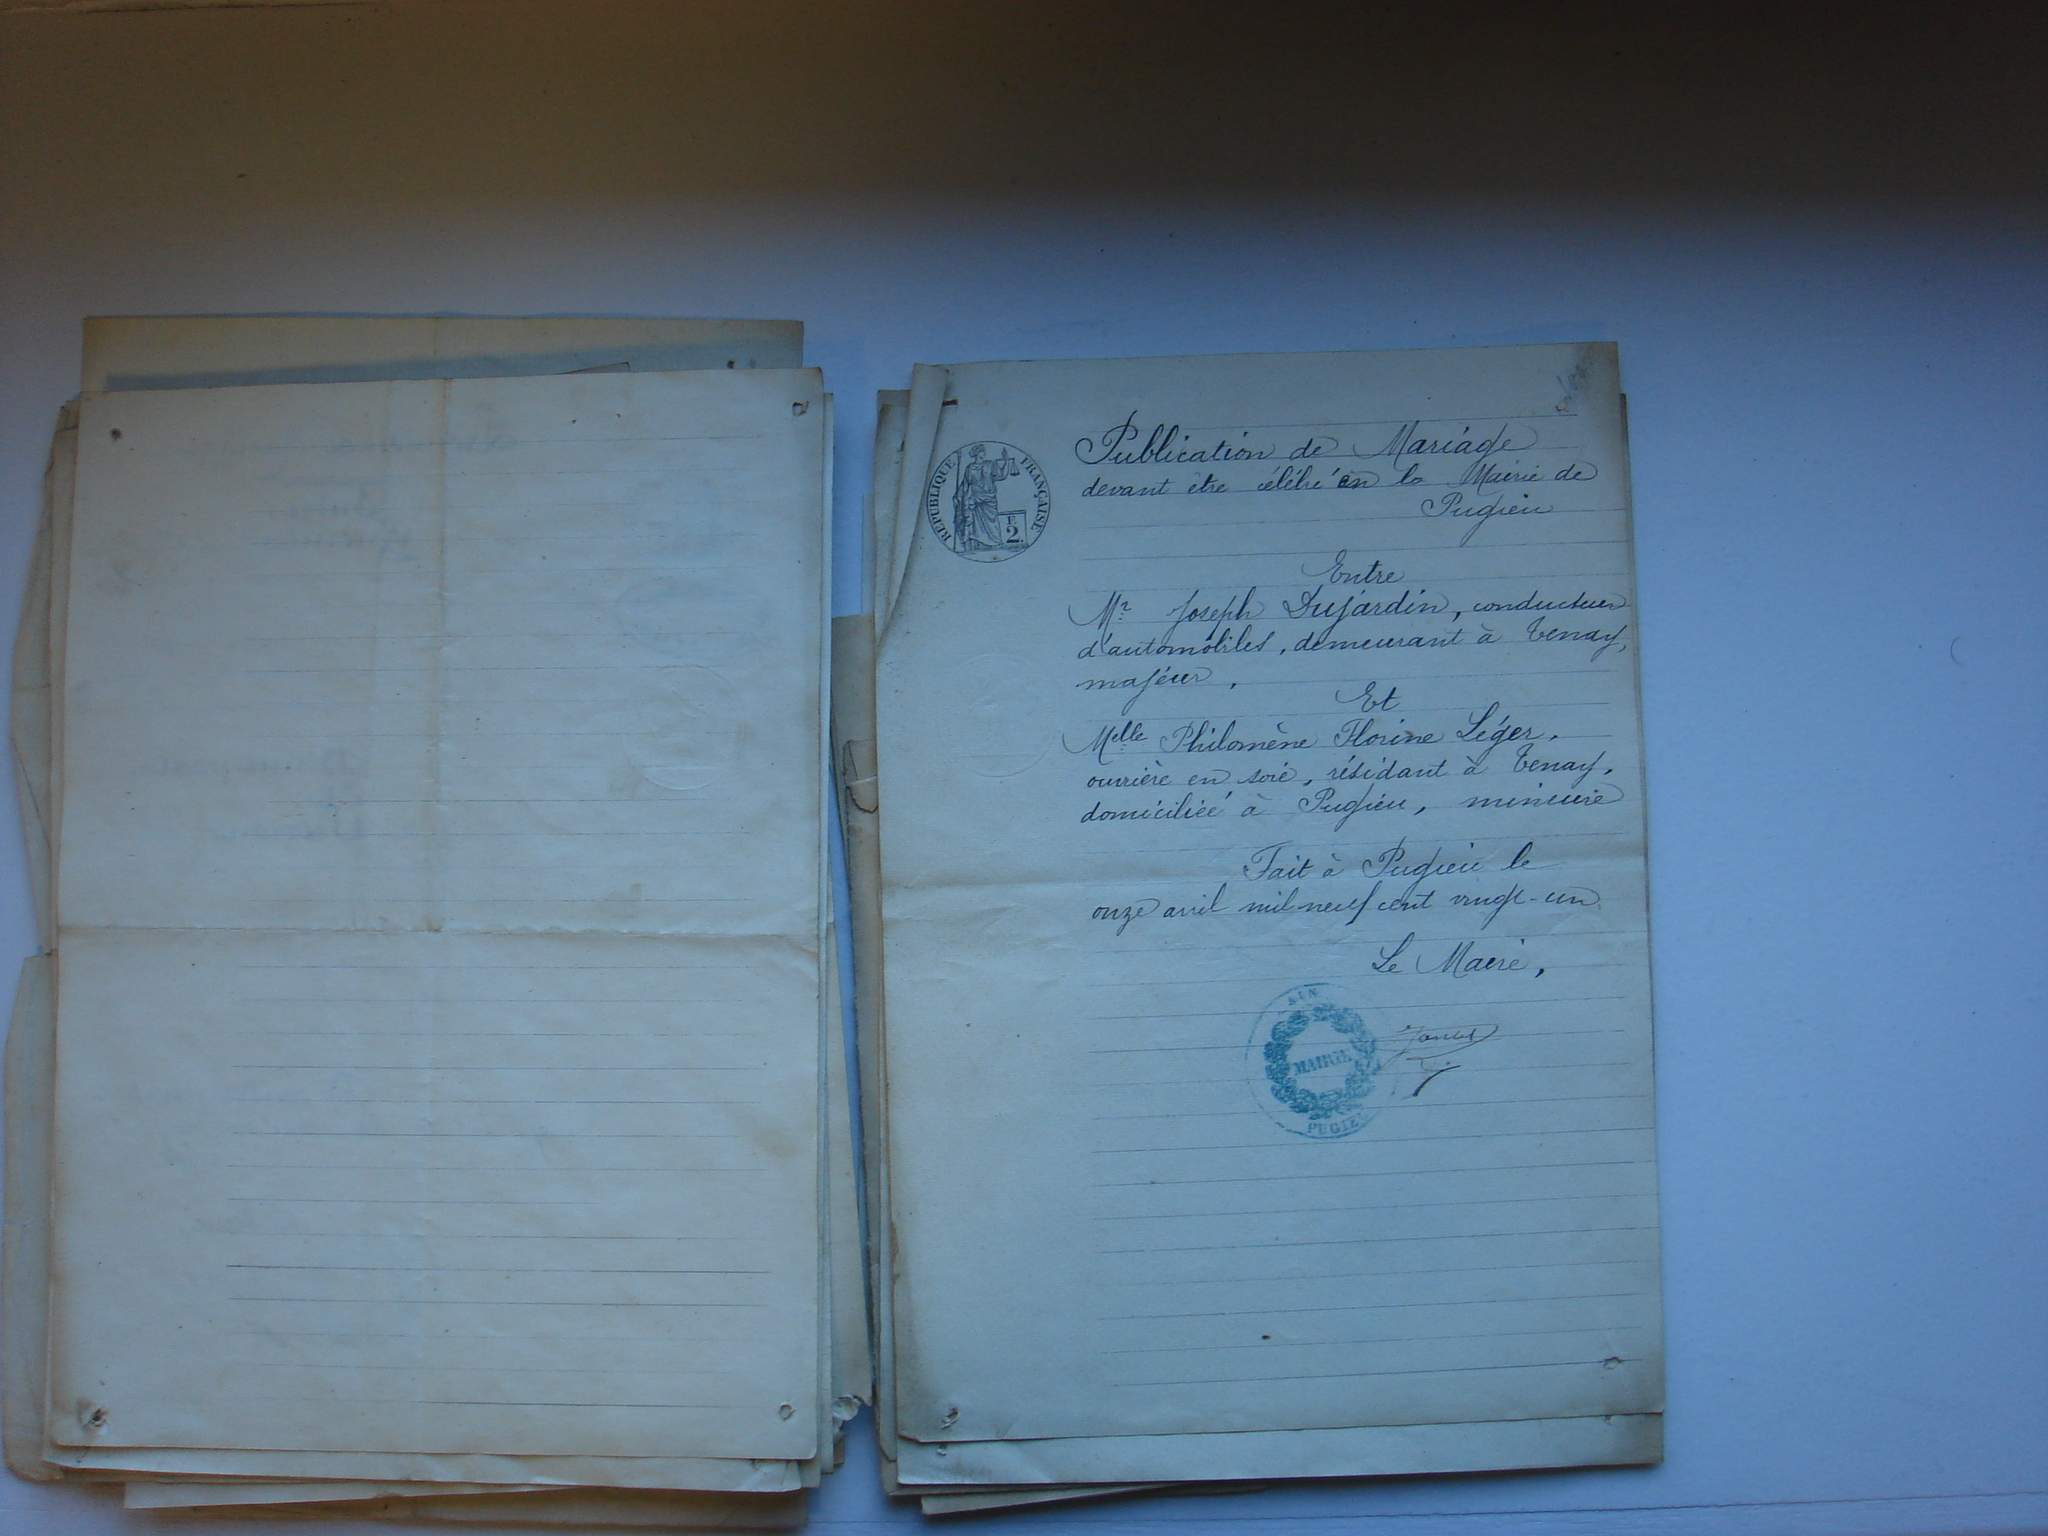 Publication de Mariage
devant être célébré en la Mairie de
Pugieu
RÉPUBLIQUE FRANÇAISE
F.
2.
Entre
Mr Joseph Dujardin, conducteur
d'automobiles, demeurant à Tenay,
majeur,
Et
Melle Philomène Florine Léger,
ouvrière en soie, résidant à Tenay,
domiciliée à Pugieu, mineure
Fait à Pugieu le
onze avril mil neuf cent vingt-un
Le Maire,
AIN
MAIRIE
PUGIE